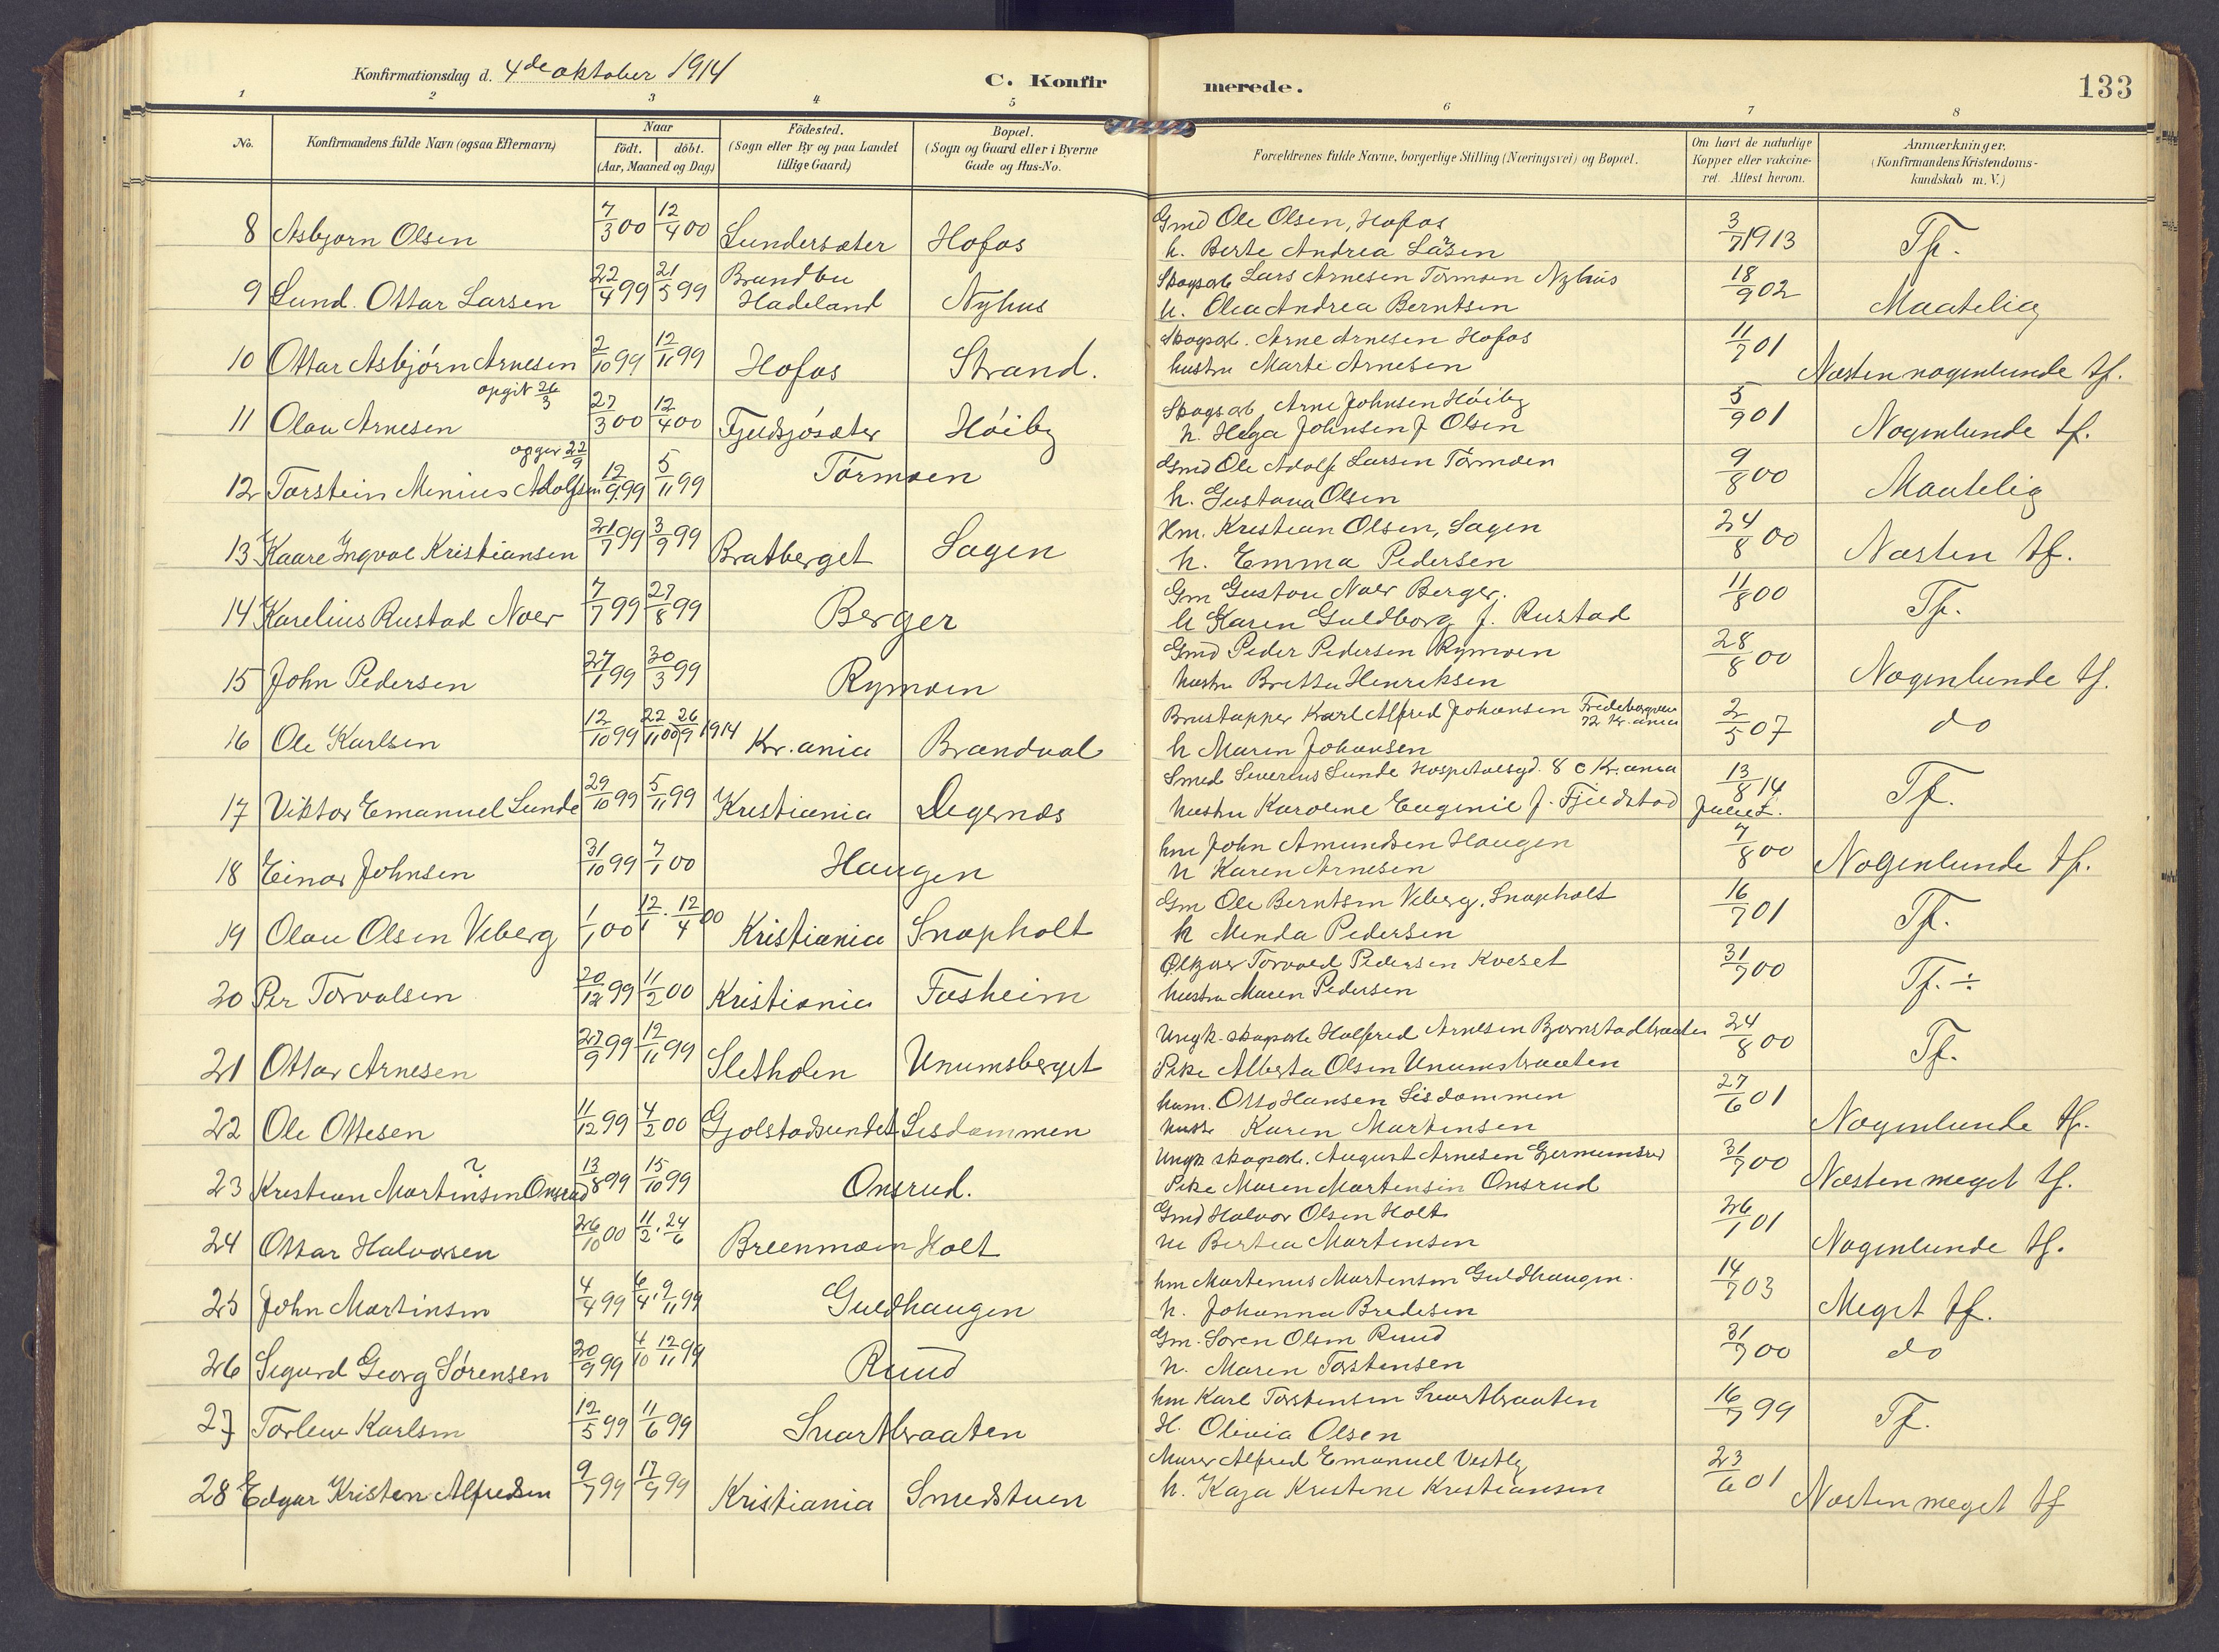 Konfirmationsdag d. 4de oktober 1914
C. Konfirmerede.
133
1 2 3 4 5 6 7 8
No. Konfirmandens fulde Navn (ogsaa Efternavn) Naar födt. döbt. (Aar, Maaned og Dag) Födested. (Sogn eller By og paa Landet tillige Gaard) Bopæl. (Sogn og Gaard eller i Byerne Gade og Hus-No. Forældrenes fulde Navne, borgerlige Stilling (Næringsvei) og Bopæl. Om havt de naturlige Kopper eller vakcineret. Attest herom. Anmærkninger. (Konfirmandens Kristendomskundskab m. V.)
8 Asbjørn Olsen 7/3 00 12/4 00 Lundersæter Hofos Gmd Ole Olsen, Hofos 3/7 1913 Tf.
h. Berte Andrea
9 Lund. Ottar Larsen 22/4 99 21/5 99 Brandbu Hadeland Nyhus Skogsarb Lars Arnesen Tormoen Nyhus 18/9 02 Maatelig
h. Olea Andrea Berntsen
10 Ottar Asbjørn Arnesen 2/10 99 12/11 99 Hofos Strand. Skogsarb. Arne Arnesen Hofos 11/7 01 Næsten nogenlunde tf.
hustru Marte Arnesen
opgit 26/3
11 Olav Arnesen 27/3 00 12/4 00 Fjeldsjøsæter Høiby Skogsarb. Arne Johnsen Høiby 5/9 01 Nogenlunde tf.
h. Helga Johnsen f Olsen
opgir 22/9
12 Torstein Menius Adolfsen 12/9 99 5/11 99 Törmoen Gmd Ole Adolf Larsen Törmoen 9/8 00 Maatelig
h. Gustava Olsen
13 Kaare Ingval Kristiansen 21/7 99 3/9 99 Bratberget Sagen Hm. Kristian Olsen, Sagen 24/8 00 Næsten tf.
h. Emma Pedersen
14 Karelius Rustad Noer 7/7 99 27/8 99 Berger Gm Gustav Noer Berger. 11/8 00 Tf.
h Karen Guldborg f. Rustad
15 John Pedersen 27/1 99 30/3 99 Rymoen Gmd Peder Pedersen Rymoen 28/8 00 Nogenlunde tf.
hustru Britta Henriksen
16 Ole Karlsen 12/10 99 22/11 00 26/9 1914 Kr.ania Brandval Brustapper Karl Alfred Johansen 72 Kr.ania 2/5 07 do
h Maren Johansen
17 Viktor Emanuel Lunde 29/10 99 5/11 99 Kristiania Degernes Smed Severins Lunde Hospitalsgd. 8 c Kr.ania 13/8 14 Tf.
hustru Karoline Eugenie f. Fjeldstad
18 Einar Johnsen 31/10 99 7/1 00 Haugen hm John Amundsen Haugen 7/8 00 Nogenlunde tf.
h Karen Arnesen
19 Olav Olsen Viberg 1/1 00 12/1. 12/4 00 Kristiania Snapholt Gm Ole Berntsen Viberg, Snapholt 16/7 01 Tf.
h Menda Pedersen
20 Per Torvalsen 20/12 99 11/2 00 Kristiania Fasheim Torvald Pedersen Kveset 31/7 00 Tf. ÷
hustru Maren Pedersen
21 Ottar Arnesen 27/9 99 12/11 99 Sletholen Unumsberget Ungk. skogsarb Halfred Arnesen Bjørnstadbraaten 24/8 00 Tf.
Pike Alberta Olsen Unumsbraaten
22 Ole Ottesen 11/12 99 4/2 00 Gjolstadsundet Lisdammen hum. Otto Hansen Lisdammen 27/6 01 Nogenlunde tf.
hustr Karen Martinsen
23 Kristian Martinsen ? Onsrud 13/8 99 15/10 99 Onsrud. Ungk skogsarb. August Arnesen Germundsrud 31/7 00 Næsten meget tf.
Pike Maren Martensen Onsrud
24 Ottar Halvorsen 26/10 00 11/2. 24/6 Breenmoen Holt Gmd Halvor Olsen Holt 26/1 01 Nogenlunde tf.
Bertea Martensen
25 John Martinsen 4/4 99 6/4. 9/11 99 Guldhaugen hm Martenus Martensen Guldhaugen. 14/7 03 Meget tf.
h. Johanna Bredesen
26 Sigurd Georg Sørensen 20/9 99 4/10 12/11 99 Ruud Gm. Søren Olsen Ruud 31/7 00 do
h. Maren Torstensen
27 Torlew Karlsen 12/5 99 11/6 99 Svartbraaten hm Karl Torstensen Svartbraaten 16/7 99 Tf.
H. Olivia Olsen
28 Edgar Kristen Alfredsen 9/7 99 17/9 99 Kristiania Smedstuen Murer Alfred Emanuel Vestly 23/6 01 Næsten meget tf
h. Kaja Kristine Kristiansen